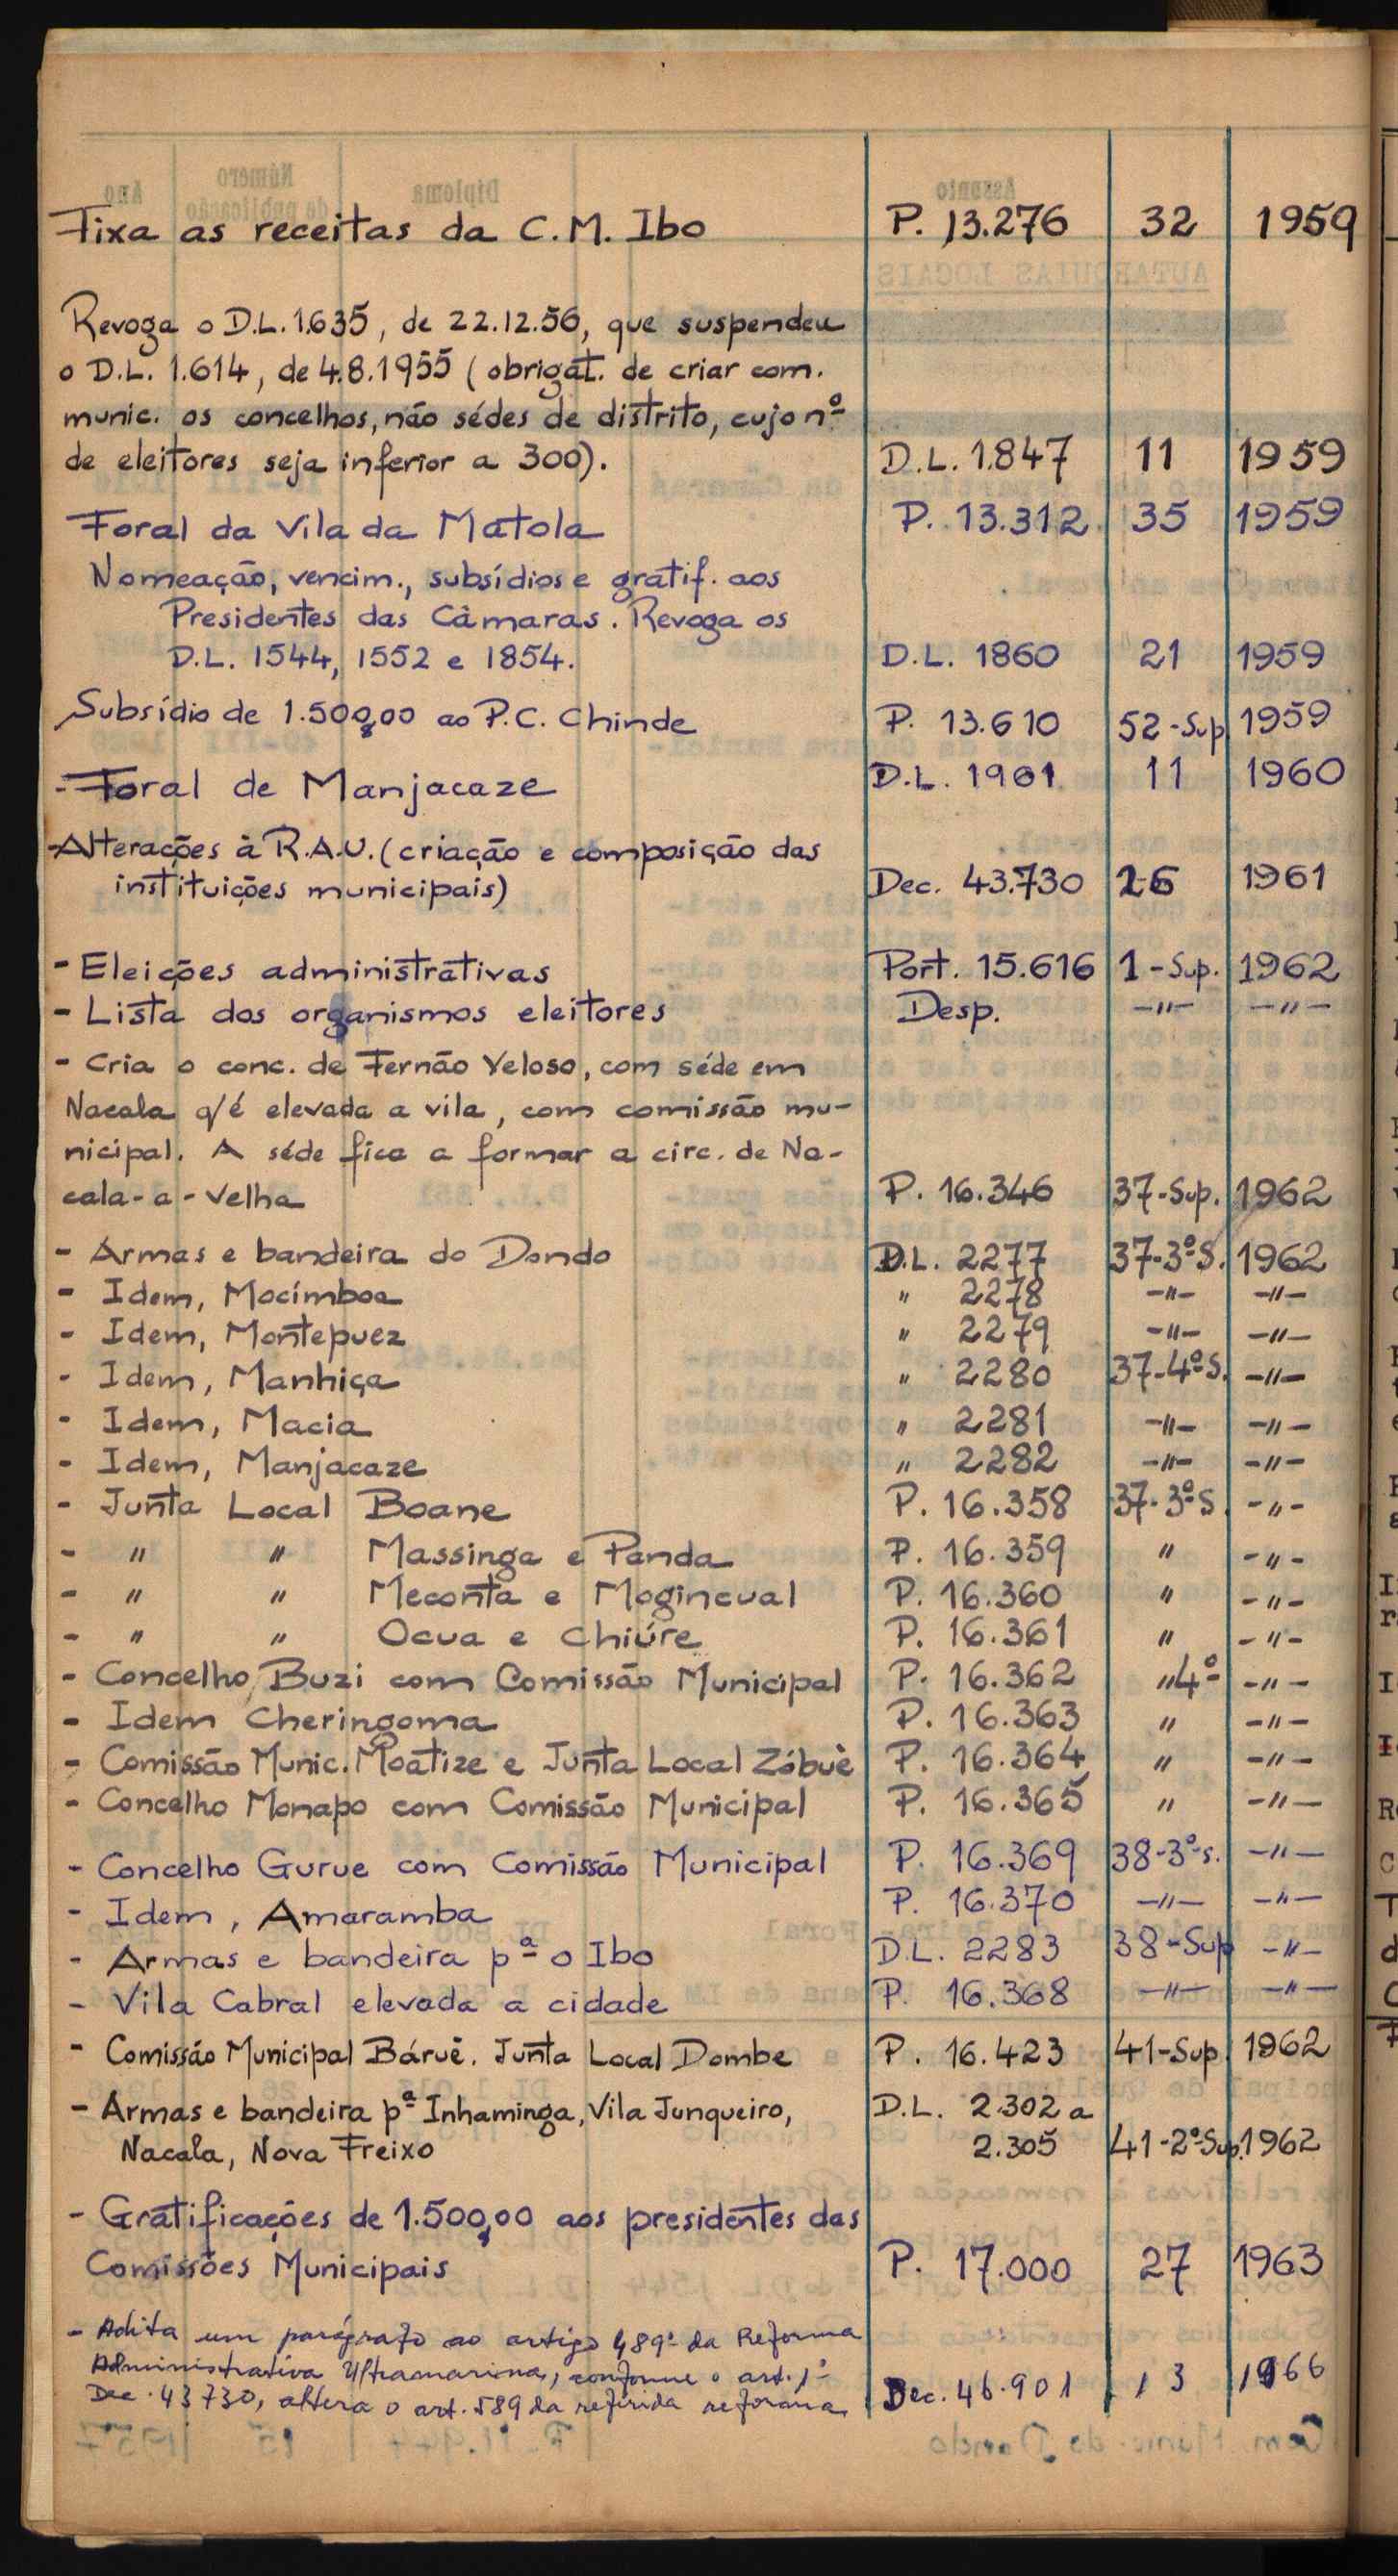 Fixa as receitas da C.M. Ibo P. 13.276 32 1959
Revoga o D.L. 1.635, de 22.12.56, que suspendeu
o D.L. 1.614, de 4.8.1955 (obrigat. de criar com.
munic. os concelhos, não sédes de distrito, cujo nº
de eleitores seja inferior a 300). D.L. 1.847 11 1959
Foral da Vila da Matola P. 13.312 35 1959
Nomeação, vencim., subsídios e gratif. aos
Presidentes das Câmaras. Revoga os
D.L. 1544, 1552 e 1854. D.L. 1860 21 1959
Subsídio de 1.500$00 ao P.C. Chinde P. 13.610 52-Sup 1959
- Foral de Manjacaze D.L. 1961 11 1960
- Alterações à R.A.U. (criação e composição das
instituições municipais) Dec. 43.730 26 1961
- Eleições administrativas Port. 15.616 1-Sup. 1962
- Lista dos organismos eleitores Desp. -"- -"-
- Cria o conc. de Fernão Veloso, com séde em
Nacala q/é elevada a vila, com comissão mu-
nicipal. A séde fica a formar a circ. de Na-
cala-a-Velha P. 16.346 37-Sup. 1962
- Armas e bandeira do Dondo D.L. 2277 37-3º S. 1962
- Idem, Mocímboa " 2278 -"- -"-
- Idem, Montepuez " 2279 -"- -"-
- Idem, Manhiça " 2280 37-4º S. -"-
- Idem, Macia " 2281 -"- -"-
- Idem, Manjacaze " 2282 -"- -"-
- Junta Local Boane P. 16.358 37-3º S. -"-
- " " Massinga e Panda P. 16.359 " -"-
- " " Meconta e Mogincual P. 16.360 " -"-
- " " Ocua e Chiúre P. 16.361 " -"-
- Concelho Buzi com Comissão Municipal P. 16.362 "4º -"-
- Idem Cheringoma P. 16.363 " -"-
- Comissão Munic. Moatize e Junta Local Zóbuè P. 16.364 " -"-
- Concelho Monapo com Comissão Municipal P. 16.365 " -"-
- Concelho Gurue com Comissão Municipal P. 16.369 38-3º s. -"-
- Idem, Amaramba P. 16.370 -"- -"-
- Armas e bandeira pª o Ibo D.L. 2283 38-Sup -"-
- Vila Cabral elevada a cidade P. 16.368 -"- -"-
- Comissão Municipal Báruè. Junta Local Dombe P. 16.423 41-Sup. 1962
- Armas e bandeira pª Inhaminga, Vila Junqueiro, D.L. 2.302 a
Nacala, Nova Freixo 2.305 41-2º Sup. 1962
- Gratificações de 1.500,00 aos presidentes das
Comissões Municipais P. 17.000 27 1963
- Adita um parágrafo ao artigo 489º da Reforma
Administrativa Ultramarina, conforme o art. 1º
Dec. 43730, altera o art. 589 da referida reforma. Dec. 46.901 13 1966